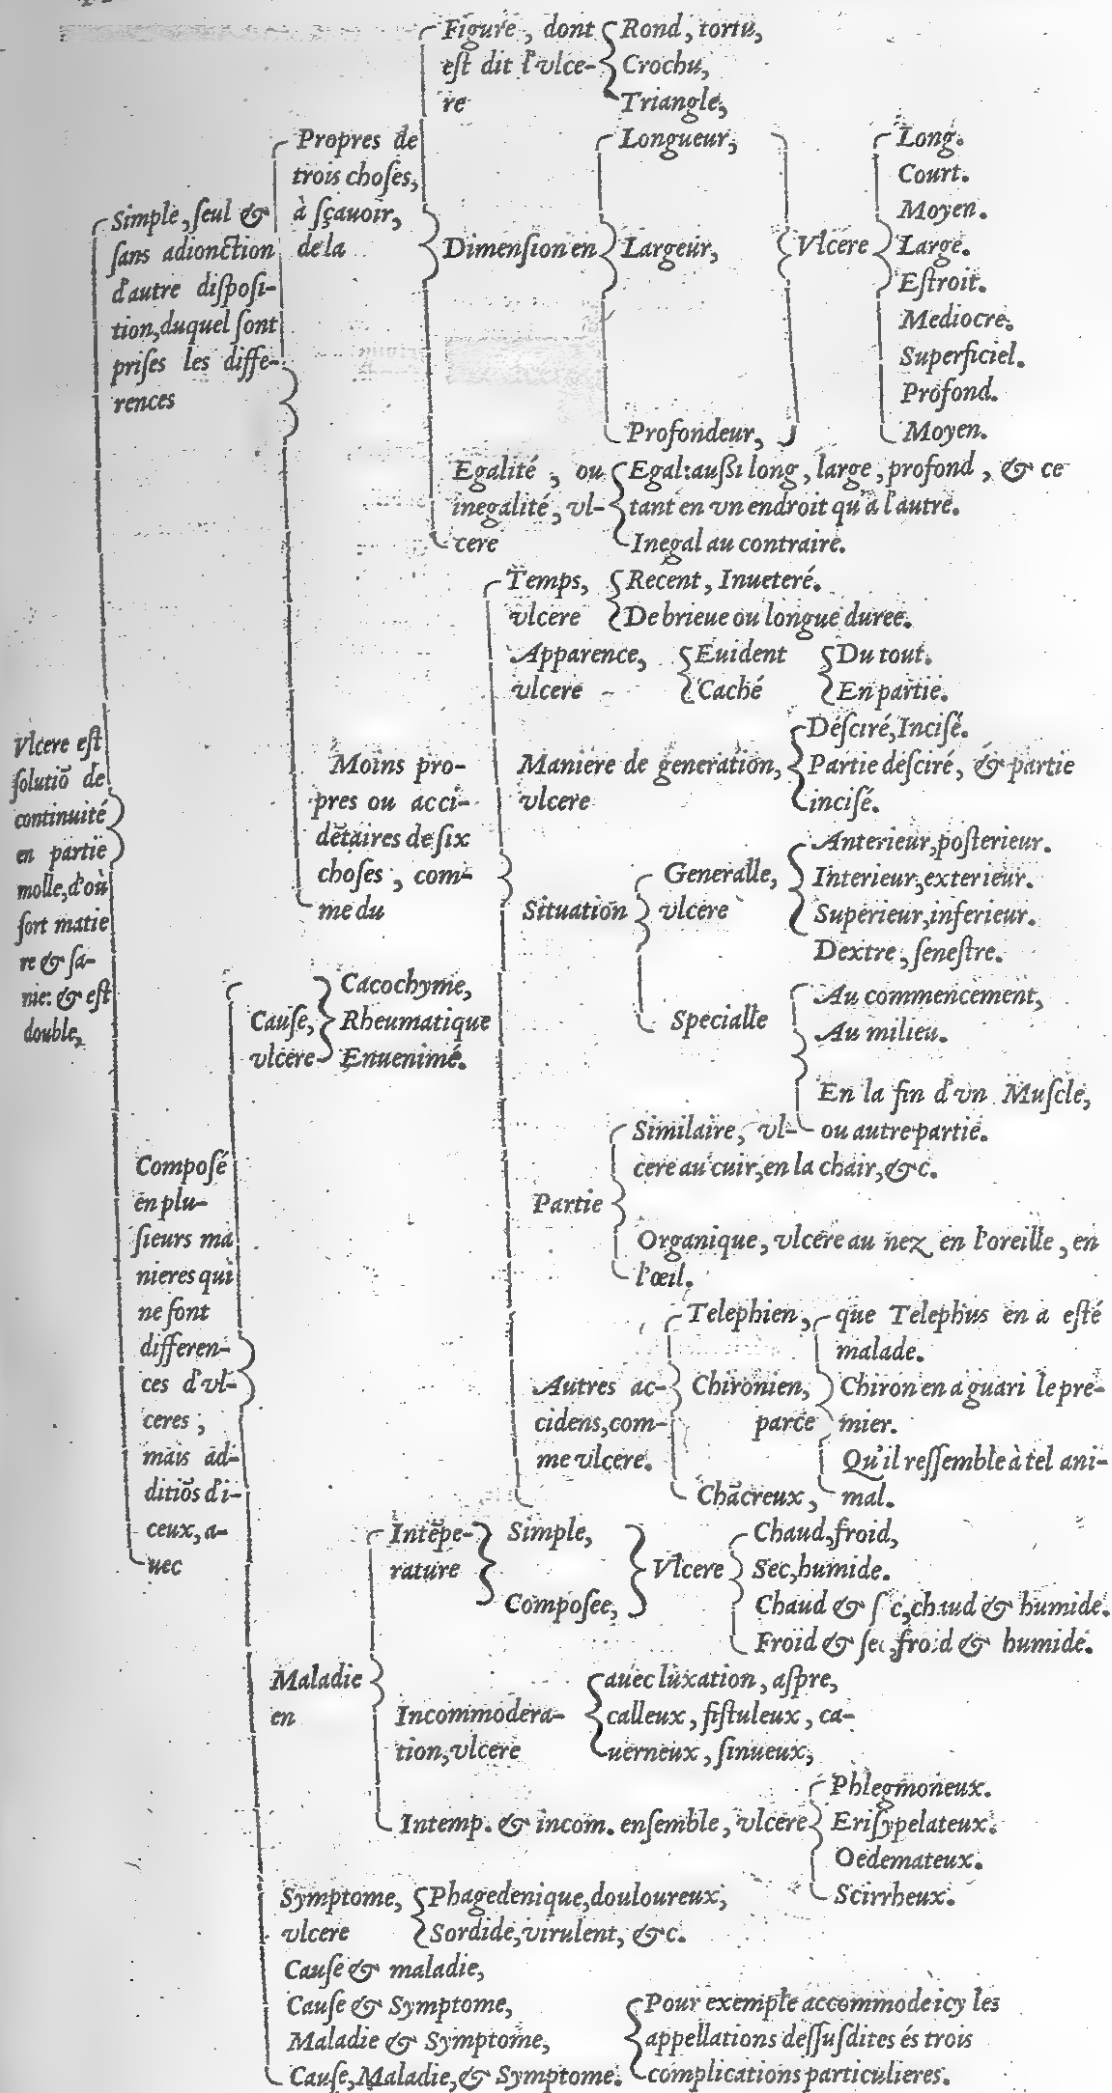 Vlcere est
solutiõ de
continuité
en partie
molle, d'où
sort matie
re & sa-
nie: & est
double,
Simple, seul &
sans adionction
d'autre disposi-
tion, duquel sont
prises les diffe-
rences
Propres de
trois choses,
à sçauoir,
de la
Figure, dont
est dit l'vlce-
re
Rond, tortu,
Crochu,
Triangle,
Dimension en
Longueur,
Largeur,
Profondeur,
Vlcere
Long.
Court.
Moyen.
Large.
Estroit.
Mediocre.
Superficiel.
Profond.
Moyen.
Egalité, ou
inegalité, vl-
cere
Egal: aussi long, large, profond, & ce
tant en vn endroit qu'à l'autre.
Inegal au contraire.
Moins pro-
pres ou acci-
dẽtaires de six
choses, com-
me du
Temps,
vlcere
Recent, Inueteré.
De brieue ou longue duree.
Apparence,
vlcere
Euident
Caché
Du tout.
En partie.
Maniere de generation,
vlcere
Desciré, Incisé.
Partie desciré, & partie
incisé.
Situation
Generalle,
vlcere
Anterieur, posterieur.
Interieur, exterieur.
Superieur, inferieur.
Dextre, senestre.
Specialle
Au commencement,
Au milieu.
En la fin d'vn Muscle,
ou autre partie.
Partie
Similaire, vl-
cere au cuir, en la chair, &c.
Organique, vlcere au nez, en l'oreille, en
l'œil.
Autres ac-
cidens, com-
me vlcere.
Telephien,
Chironien,
parce
Chãcreux,
que Telephus en a esté
malade.
Chiron en a guari le pre-
mier.
Qu'il ressemble à tel ani-
mal.
Composé
en plu-
sieurs ma
nieres qui
ne font
differen-
ces d'vl-
ceres,
mais ad-
ditiõs d'i-
ceux, a-
uec
Cause,
vlcere
Cacochyme,
Rheumatique
Enuenimé.
Maladie
en
Intẽpe-
rature
Simple,
Composee,
Vlcere
Chaud, froid,
Sec, humide.
Chaud & sec, chaud & humide.
Froid & sec, froid & humide.
Incommodera-
tion, vlcere
auec luxation, aspre,
calleux, fistuleux, ca-
uerneux, sinueux,
Intemp. & incom. ensemble, vlcere
Phlegmoneux.
Erisypelateux.
Oedemateux.
Scirrheux.
Symptome,
vlcere
Phagedenique, douloureux,
Sordide, virulent, &c.
Cause & maladie,
Cause & Symptome,
Maladie & Symptome,
Cause, Maladie, & Symptome.
Pour exemple accommode icy les
appellations dessusdites és trois
complications particulieres.